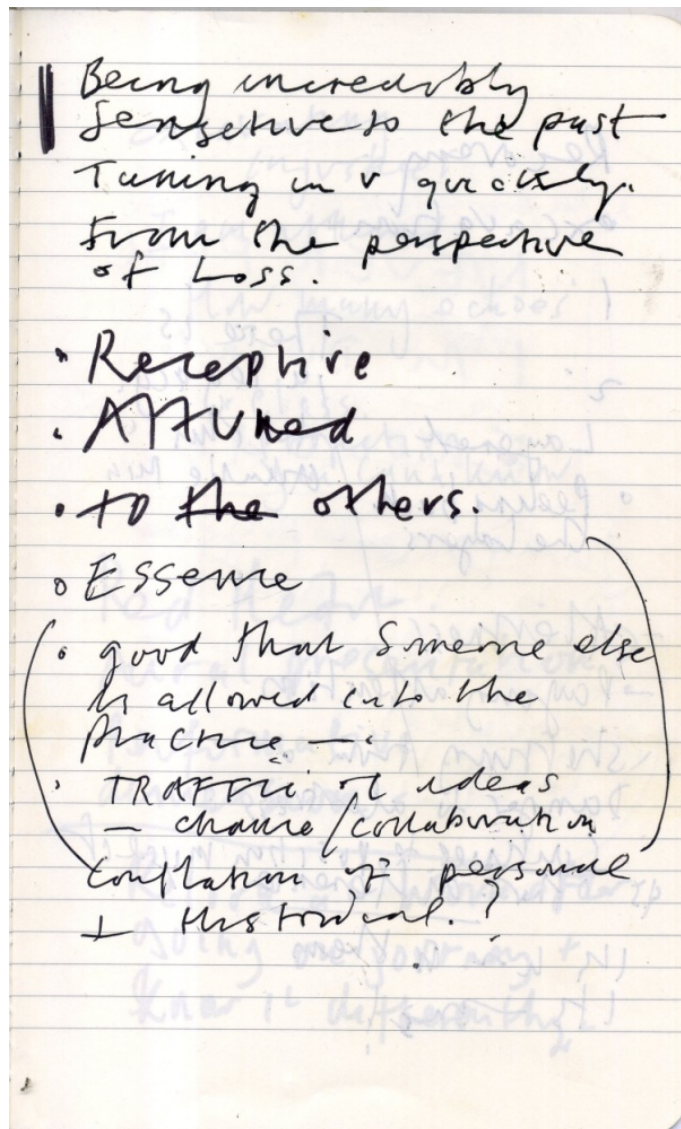 Being incredibly
Sensetive to the past
Tuning in v quickly.
From the perspective
of Loss.
• Receptive
• Attuned
• to the others.
• Essence
• good that Someone else
is allowed into the
practice —
• TRAFFIC of ideas
— chance / collaboration
Conflation of personal
+ historical.?